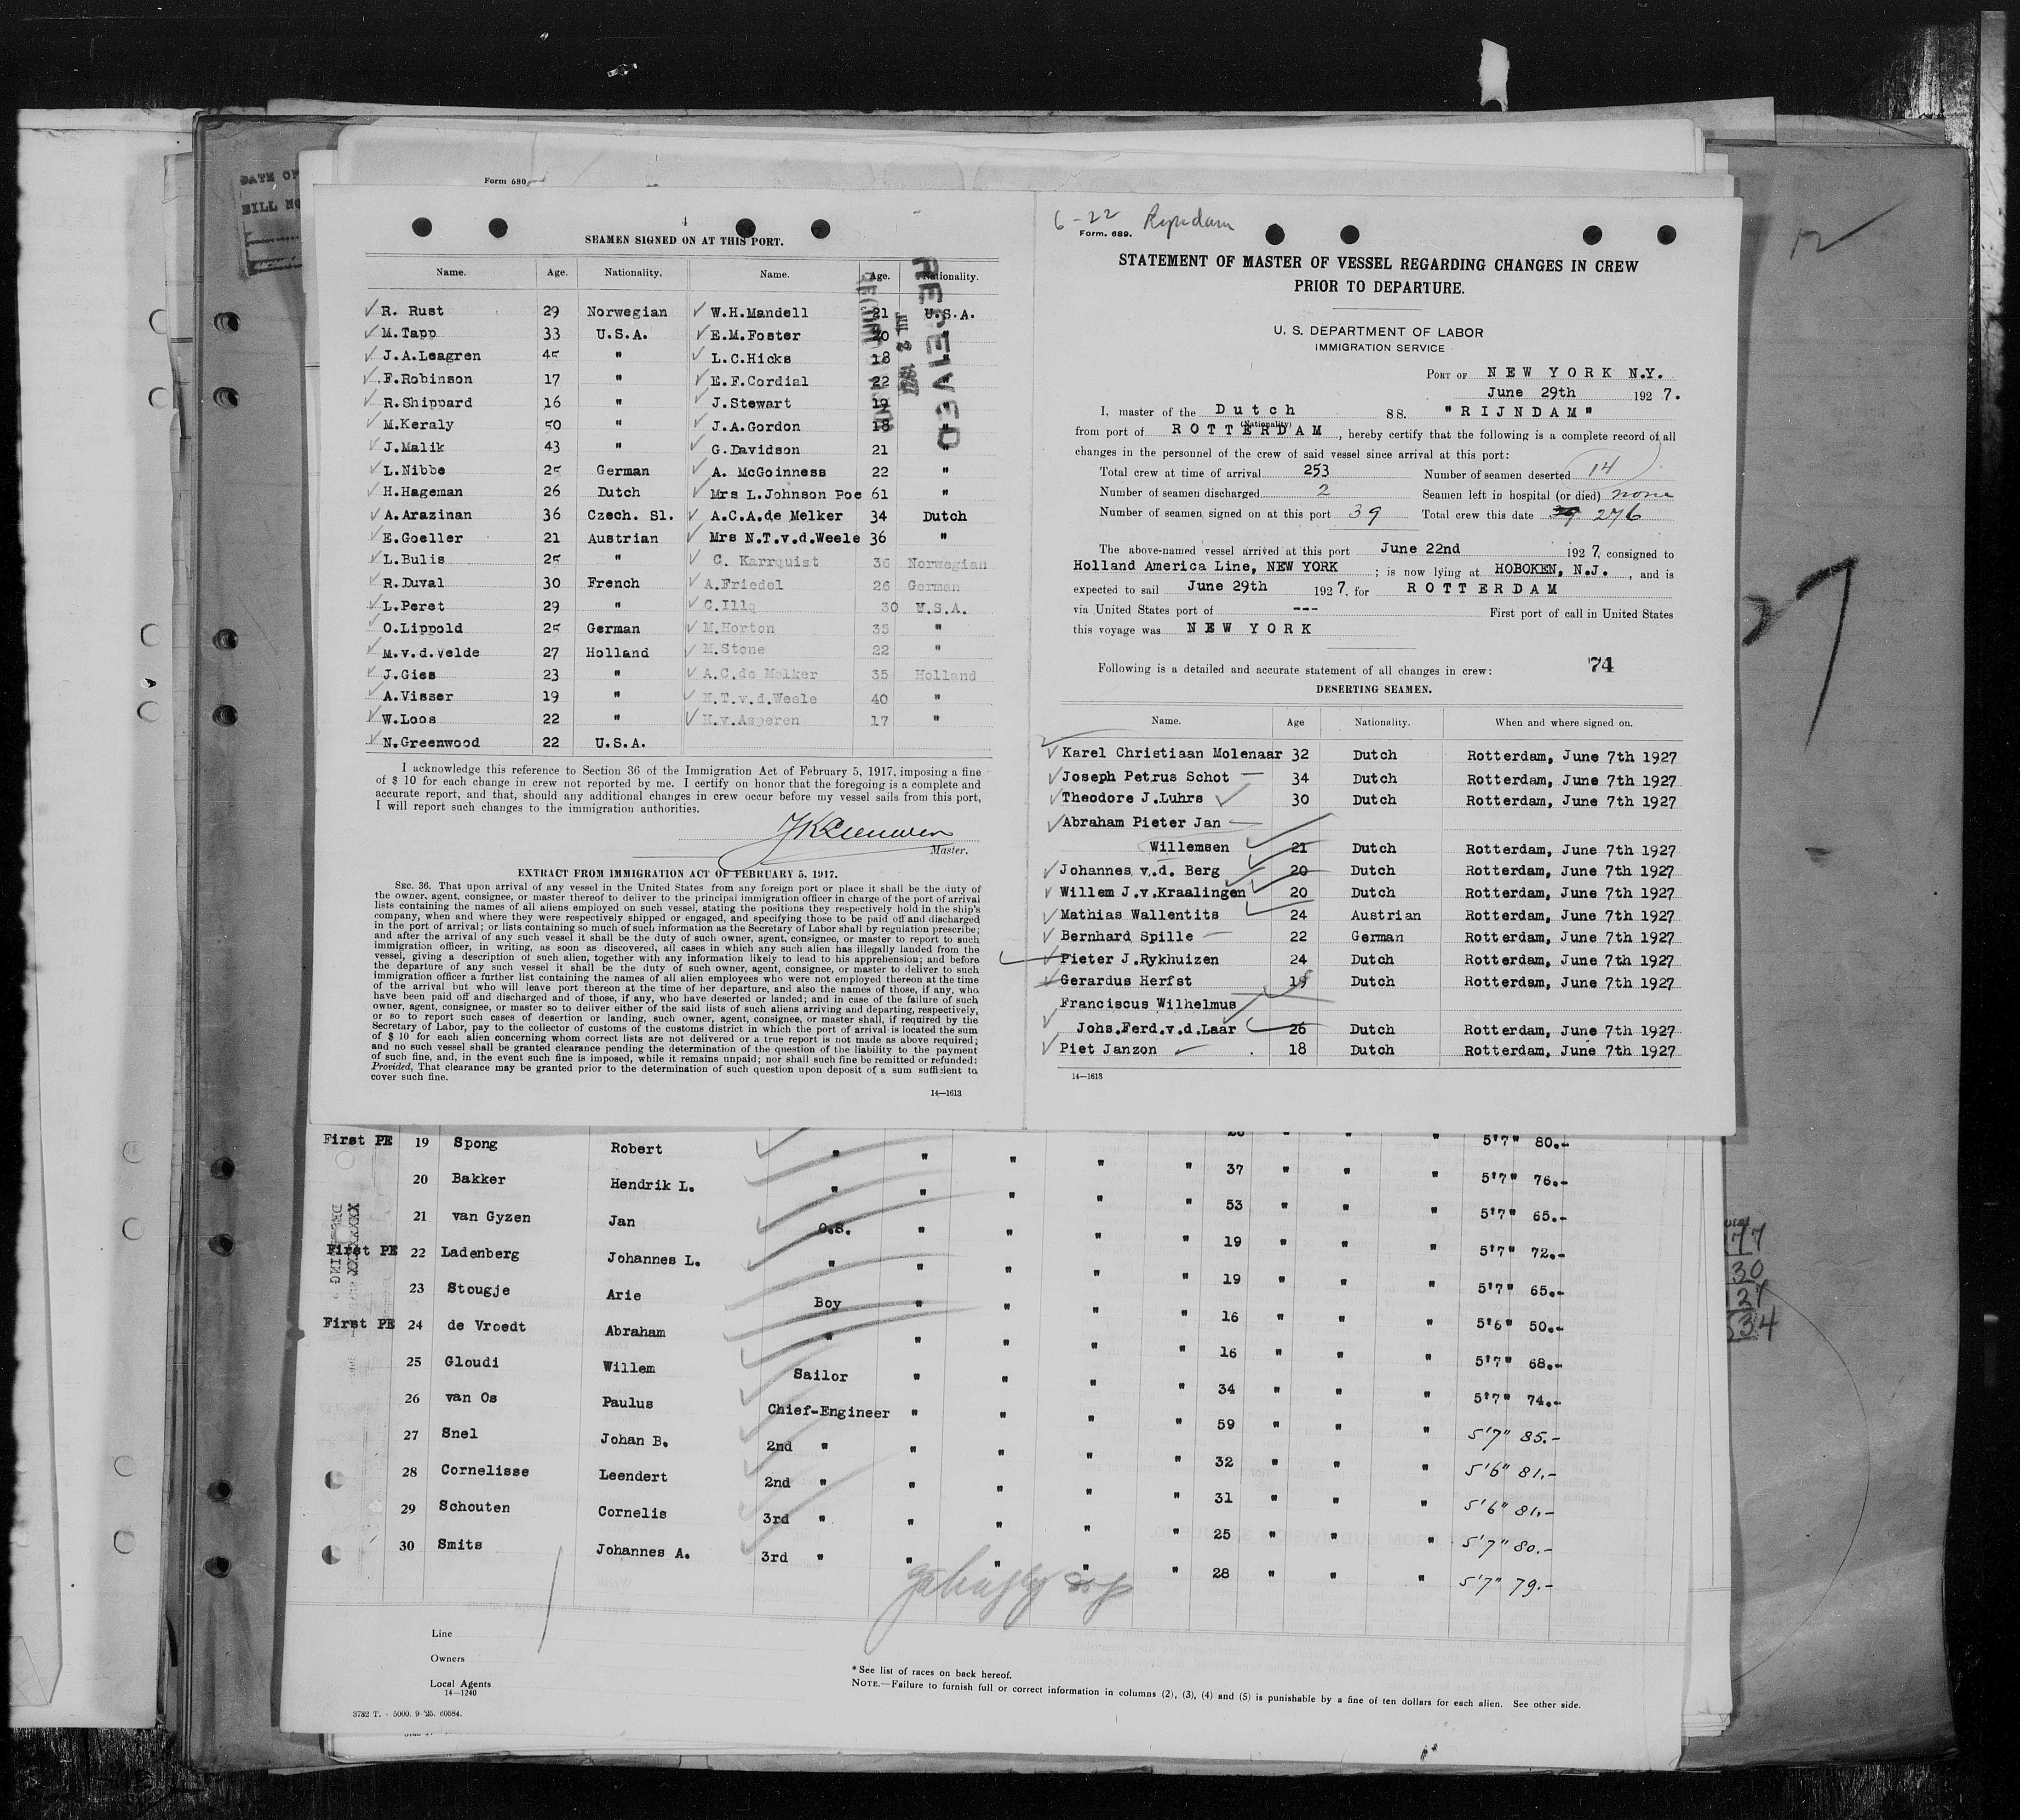 DATE OF
BILL NO
Form 680
4
SEAMEN SIGNED ON AT THIS PORT.
Name. Age. Nationality. Name. Age. Nationality.
R. Rust 29 Norwegian W.H.Mandell 21 U.S.A.
M.Tapp 33 U.S.A. E.M.Foster 20 "
J.A.Leagren 45 " L.C.Hicks 18 "
F.Robinson 17 " E.F.Cordial 22 "
R.Shippard 16 " J.Stewart 19 "
M.Keraly 50 " J.A.Gordon 18 "
J.Malik 43 " G.Davidson 21 "
L.Nibbe 25 German A. McGoinness 22 "
H.Hageman 26 Dutch Mrs L.Johnson Poe 61 "
A.Arazinan 36 Czech. Sl. A.C.A.de Melker 34 Dutch
E.Goeller 21 Austrian Mrs N.T.v.d.Weele 36 "
L.Bulis 25 " C. Karrquist 36 Norwegian
R.Duval 30 French A.Friedel 26 German
L.Peret 29 " C.Illq 30 U.S.A.
O.Lippold 25 German M.Horton 35 "
M.v.d.Velde 27 Holland M.Stone 22 "
J.Gies 23 " A.C.de Melker 35 Holland
A.Visser 19 " N.T.v.d.Weele 40 "
W.Loos 22 " H.v.Asperen 17 "
N.Greenwood 22 U.S.A.
RECEIVED
I acknowledge this reference to Section 36 of the Immigration Act of February 5, 1917, imposing a fine
of $ 10 for each change in crew not reported by me. I certify on honor that the foregoing is a complete and
accurate report, and that, should any additional changes in crew occur before my vessel sails from this port,
I will report such changes to the immigration authorities.
Master.
EXTRACT FROM IMMIGRATION ACT OF FEBRUARY 5, 1917.
SEC. 36. That upon arrival of any vessel in the United States from any foreign port or place it shall be the duty of
the owner, agent, consignee, or master thereof to deliver to the principal immigration officer in charge of the port of arrival
lists containing the names of all aliens employed on such vessel, stating the positions they respectively hold in the ship's
company, when and where they were respectively shipped or engaged, and specifying those to be paid off and discharged
in the port of arrival; or lists containing so much of such information as the Secretary of Labor shall by regulation prescribe;
and after the arrival of any such vessel it shall be the duty of such owner, agent, consignee, or master to report to such
immigration officer, in writing, as soon as discovered, all cases in which any such alien has illegally landed from the
vessel, giving a description of such alien, together with any information likely to lead to his apprehension; and before
the departure of any such vessel it shall be the duty of such owner, agent, consignee, or master to deliver to such
immigration officer a further list containing the names of all alien employees who were not employed thereon at the time
of the arrival but who will leave port thereon at the time of her departure, and also the names of those, if any, who
have been paid off and discharged and of those, if any, who have deserted or landed; and in case of the failure of such
owner, agent, consignee, or master so to deliver either of the said lists of such aliens arriving and departing, respectively,
or so to report such cases of desertion or landing, such owner, agent, consignee, or master shall, if required by the
Secretary of Labor, pay to the collector of customs of the customs district in which the port of arrival is located the sum
of $ 10 for each alien concerning whom correct lists are not delivered or a true report is not made as above required;
and no such vessel shall be granted clearance pending the determination of the question of the liability to the payment
of such fine, and, in the event such fine is imposed, while it remains unpaid; nor shall such fine be remitted or refunded:
Provided, That clearance may be granted prior to the determination of such question upon deposit of a sum sufficient to
cover such fine.
14—1613
6-22 Rijndam
Form. 689.
STATEMENT OF MASTER OF VESSEL REGARDING CHANGES IN CREW
PRIOR TO DEPARTURE.
U. S. DEPARTMENT OF LABOR
IMMIGRATION SERVICE
PORT OF NEW YORK N.Y.
June 29th 1927.
I, master of the Dutch SS. "RIJNDAM"
(Nationality)
from port of ROTTERDAM, hereby certify that the following is a complete record of all
changes in the personnel of the crew of said vessel since arrival at this port:
Total crew at time of arrival 253 Number of seamen deserted 14
Number of seamen discharged 2 Seamen left in hospital (or died) none
Number of seamen signed on at this port 39 Total crew this date 39 276
The above-named vessel arrived at this port June 22nd 1927, consigned to
Holland America Line, NEW YORK ; is now lying at HOBOKEN, N.J. , and is
expected to sail June 29th 1927, for ROTTERDAM
via United States port of --- First port of call in United States
this voyage was NEW YORK
Following is a detailed and accurate statement of all changes in crew: 74
DESERTING SEAMEN.
Name. Age Nationality. When and where signed on.
Karel Christiaan Molenaar 32 Dutch Rotterdam, June 7th 1927
Joseph Petrus Schot 34 Dutch Rotterdam, June 7th 1927
Theodore J.Luhrs 30 Dutch Rotterdam, June 7th 1927
Abraham Pieter Jan
Willemsen 21 Dutch Rotterdam, June 7th 1927
Johannes v.d. Berg 20 Dutch Rotterdam, June 7th 1927
Willem J.v.Kraalingen 20 Dutch Rotterdam, June 7th 1927
Mathias Wallentits 24 Austrian Rotterdam, June 7th 1927
Bernhard Spille 22 German Rotterdam, June 7th 1927
Pieter J.Rykhuizen 24 Dutch Rotterdam, June 7th 1927
Gerardus Herfst 19 Dutch Rotterdam, June 7th 1927
Franciscus Wilhelmus
Johs.Ferd.v.d.Laar 26 Dutch Rotterdam, June 7th 1927
Piet Janzon 18 Dutch Rotterdam, June 7th 1927
14—1613
First PE 19 Spong Robert " " " " " 26 " " " 5'7" 80.-
20 Bakker Hendrik L. " " " " " 37 " " " 5'7" 76.-
21 van Gyzen Jan O.S. " " " " 53 " " " 5'7" 65.-
First PE 22 Ladenberg Johannes L. " " " " " 19 " " " 5'7" 72.-
23 Stougje Arie Boy " " " " 19 " " " 5'7" 65.-
First PE 24 de Vroedt Abraham " " " " " 16 " " " 5'6" 50.-
25 Gloudi Willem Sailor " " " " 16 " " " 5'7" 68.-
26 van Os Paulus Chief-Engineer " " " " 34 " " " 5'7" 74.-
27 Snel Johan B. 2nd " " " " " 59 " " " 5'7" 85.-
28 Cornelisse Leendert 2nd " " " " " 32 " " " 5'6" 81.-
29 Schouten Cornelis 3rd " " " " " 31 " " " 5'6" 81.-
30 Smits Johannes A. 3rd " " " " " 25 " " " 5'7" 80.-
28 " " " 5'7" 79.-
Line
Owners
Local Agents
14—1240
*See list of races on back hereof.
NOTE.—Failure to furnish full or correct information in columns (2), (3), (4) and (5) is punishable by a fine of ten dollars for each alien. See other side.
3782 T. - 5000. 9 '25. 60584.
77
30
27
534